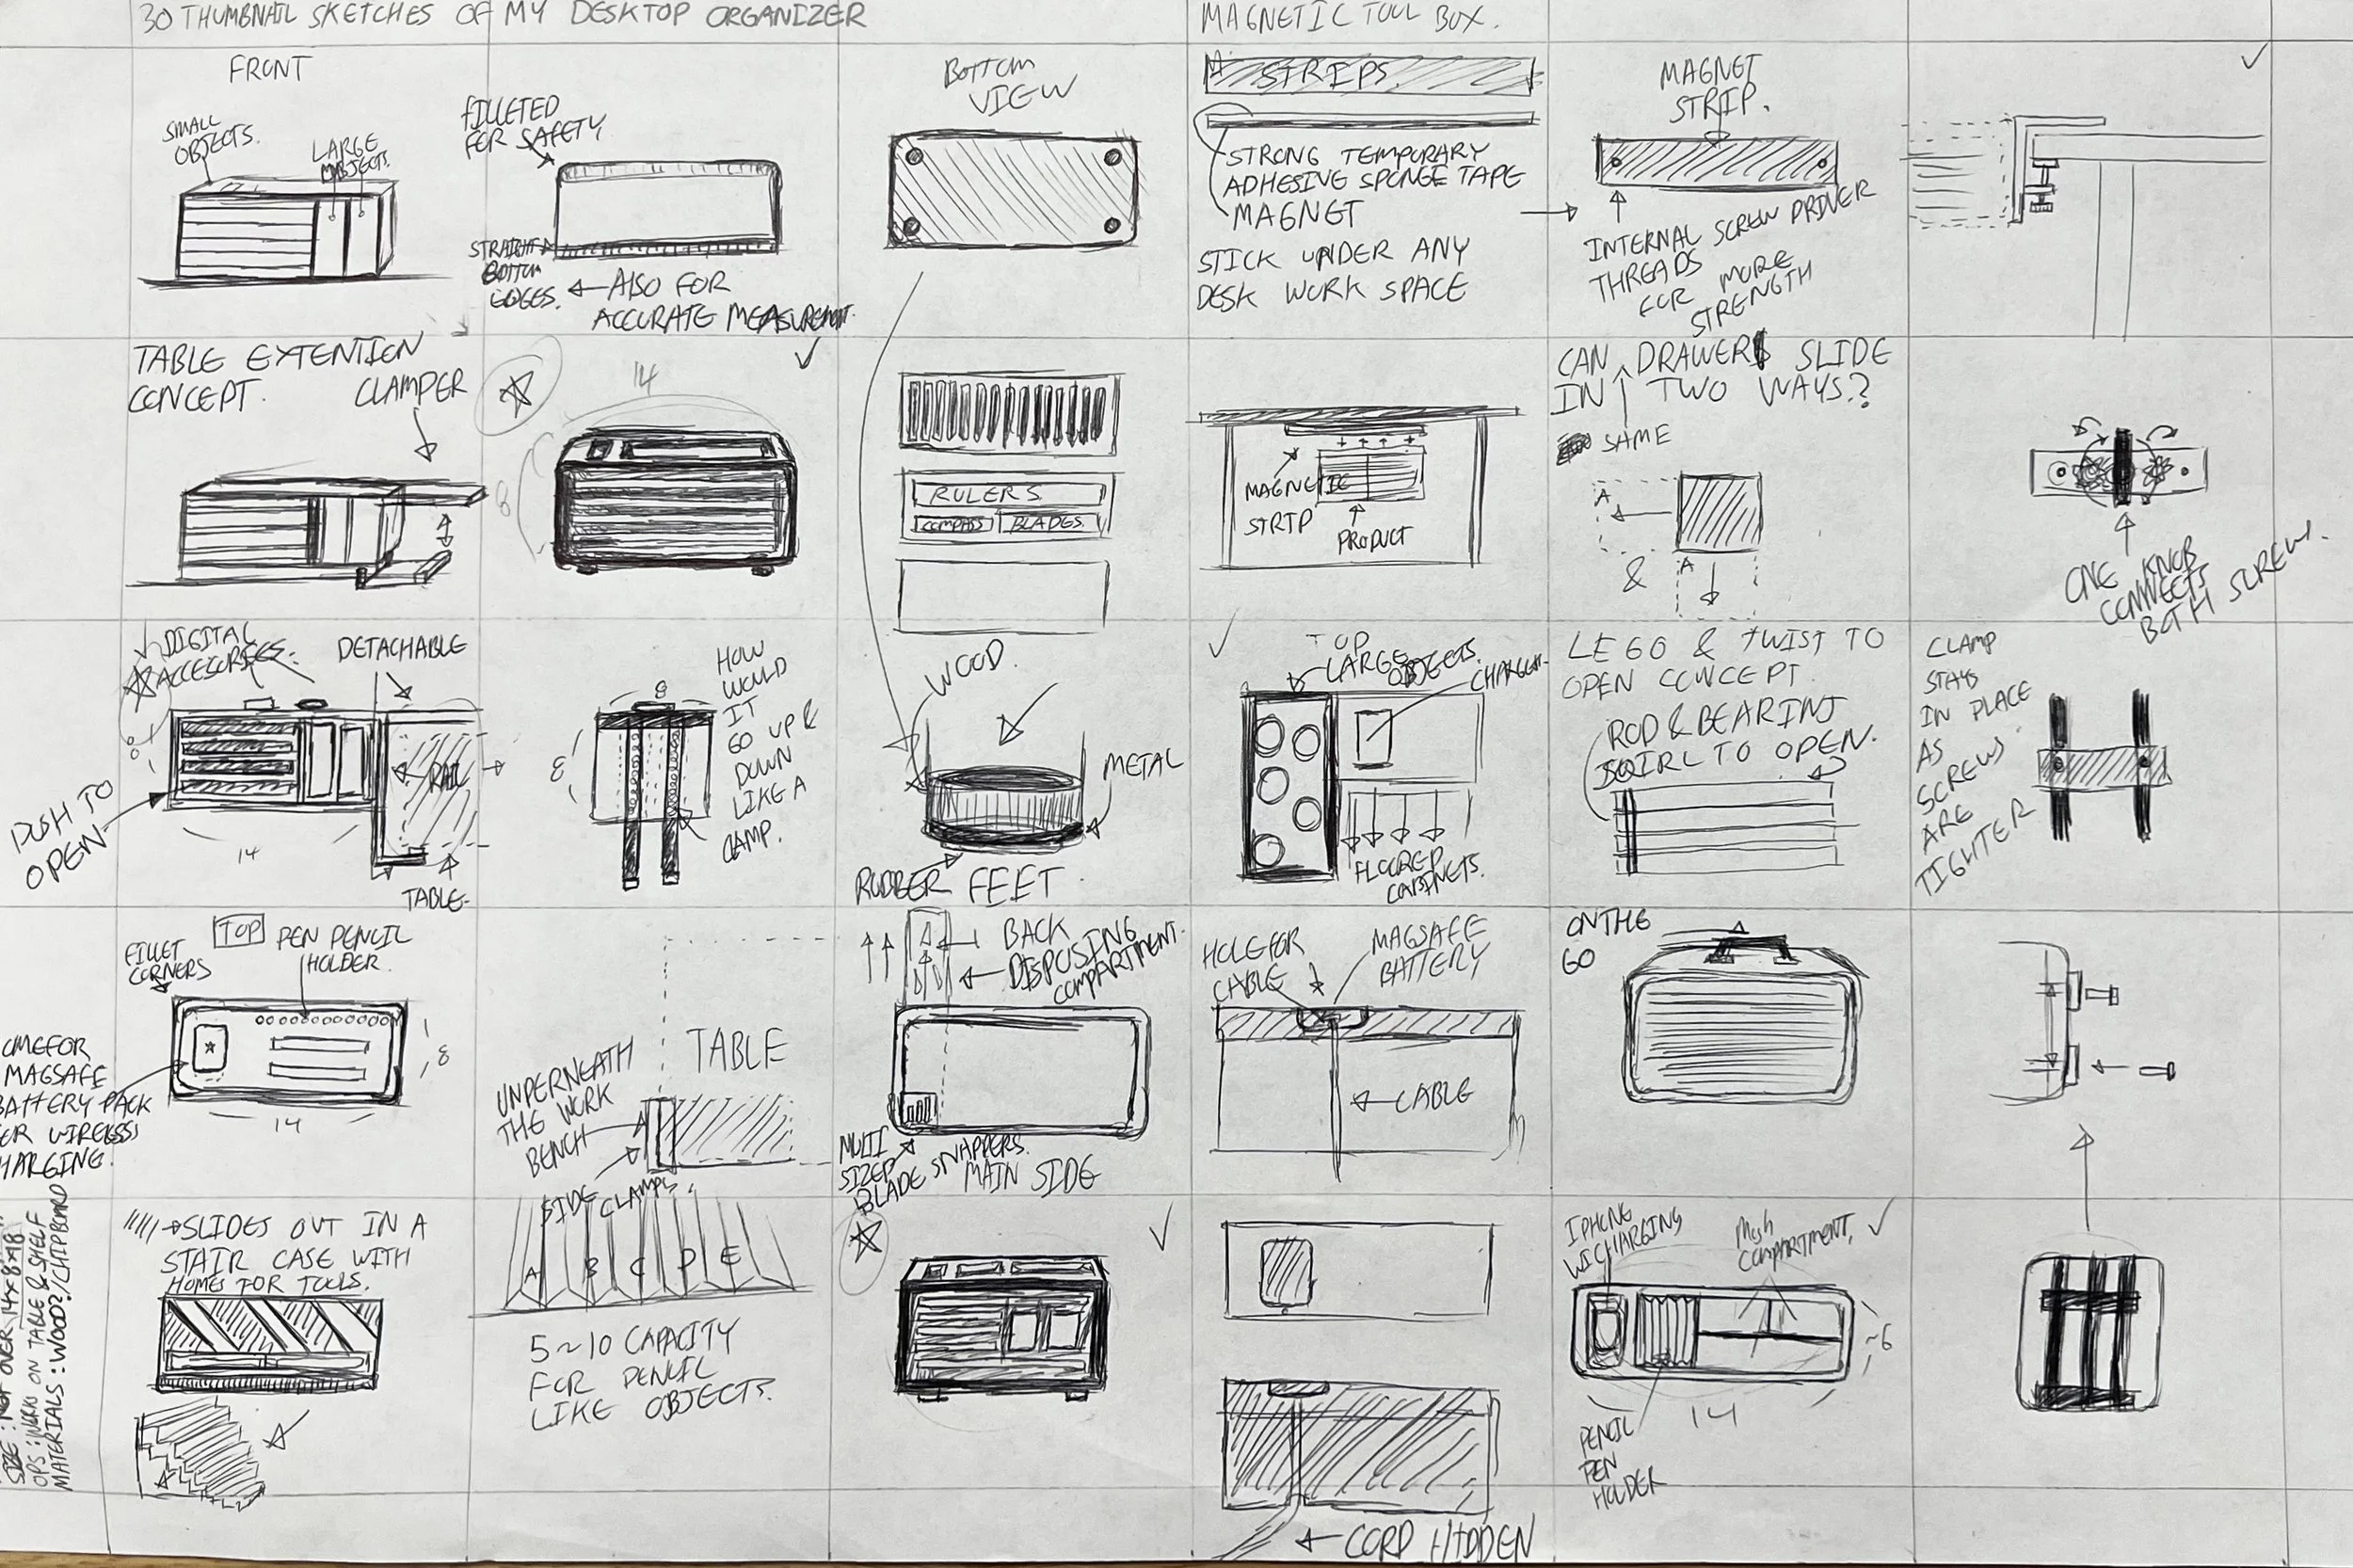 30 THUMBNAIL SKETCHES OF MY DESKTOP ORGANIZER
MAGNETIC TOOL BOX.
FRONT
SMALL
OBJECTS.
LARGE
OBJECTS.
FILLETED
FOR SAFETY
STRAIGHT
BOTTOM
EDGES.
ALSO FOR
ACCURATE MEASUREMENT.
BOTTOM
VIEW
STRIPS.
STRONG TEMPORARY
ADHESING SPONGE TAPE
MAGNET
STICK UNDER ANY
DESK WORK SPACE
MAGNET
STRIP.
INTERNAL SCREW DRIVER
THREADS
FOR MORE
STRENGTH
TABLE EXTENTION
CONCEPT.
CLAMPER
14
8
RULERS
COMPASS
BLADES.
MAGNETIC
STRIP
PRODUCT
CAN DRAWERS SLIDE
IN TWO WAYS.?
SAME
A
&
A
ONE KNOB
CONNECTS
BOTH SCREW.
DIGITAL
ACCESORIES:
DETACHABLE
8
RAIL
PUSH TO
OPEN
14
TABLE
8
8
HOW
WOULD
IT
GO UP &
DOWN
LIKE A
CLAMP.
WOOD.
METAL
RUBBER FEET.
TOP
LARGE
OBJECTS.
CHARGER.
FLOORED
CABINETS.
LEGO & TWIST TO
OPEN CONCEPT.
ROD & BEARING
SQIRL TO OPEN.
CLAMP
STAYS
IN PLACE
AS
SCREWS
ARE
TIGHTER
TOP
PEN PENCIL
HOLDER.
FILLET
CORNERS
8
14
MAGSAFE
BATTERY PACK
WIRELESS
HARGING.
TABLE
UNDERNEATH
THE WORK
BENCH
SIDE CLAMPS.
BACK
DISPOSING
COMPARTMENT.
MULTI
SIZED
BLADE SNAPPERS.
MAIN SIDE
HOLE FOR
CABLE
MAGSAFE
BATTERY
CABLE
ON THE
GO
SLIDES OUT IN A
STAIR CASE WITH
HOMES FOR TOOLS.
A
B
C
D
E
5~10 CAPACITY
FOR PENCIL
LIKE OBJECTS.
CORD HIDDEN
IPHONE
W/CHARGING
COMPARTMENT.
~6
14
PENCIL
PEN
HOLDER
SIZE: NOT OVER 14x8x18"
OPS: WORKS ON TABLE & SHELF
MATERIALS: WOOD?/CHIPBOARD